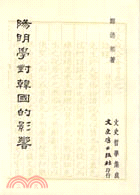 鄭德熙著
文史哲學集成
文史哲出版社印行
陽明學對韓國的影響